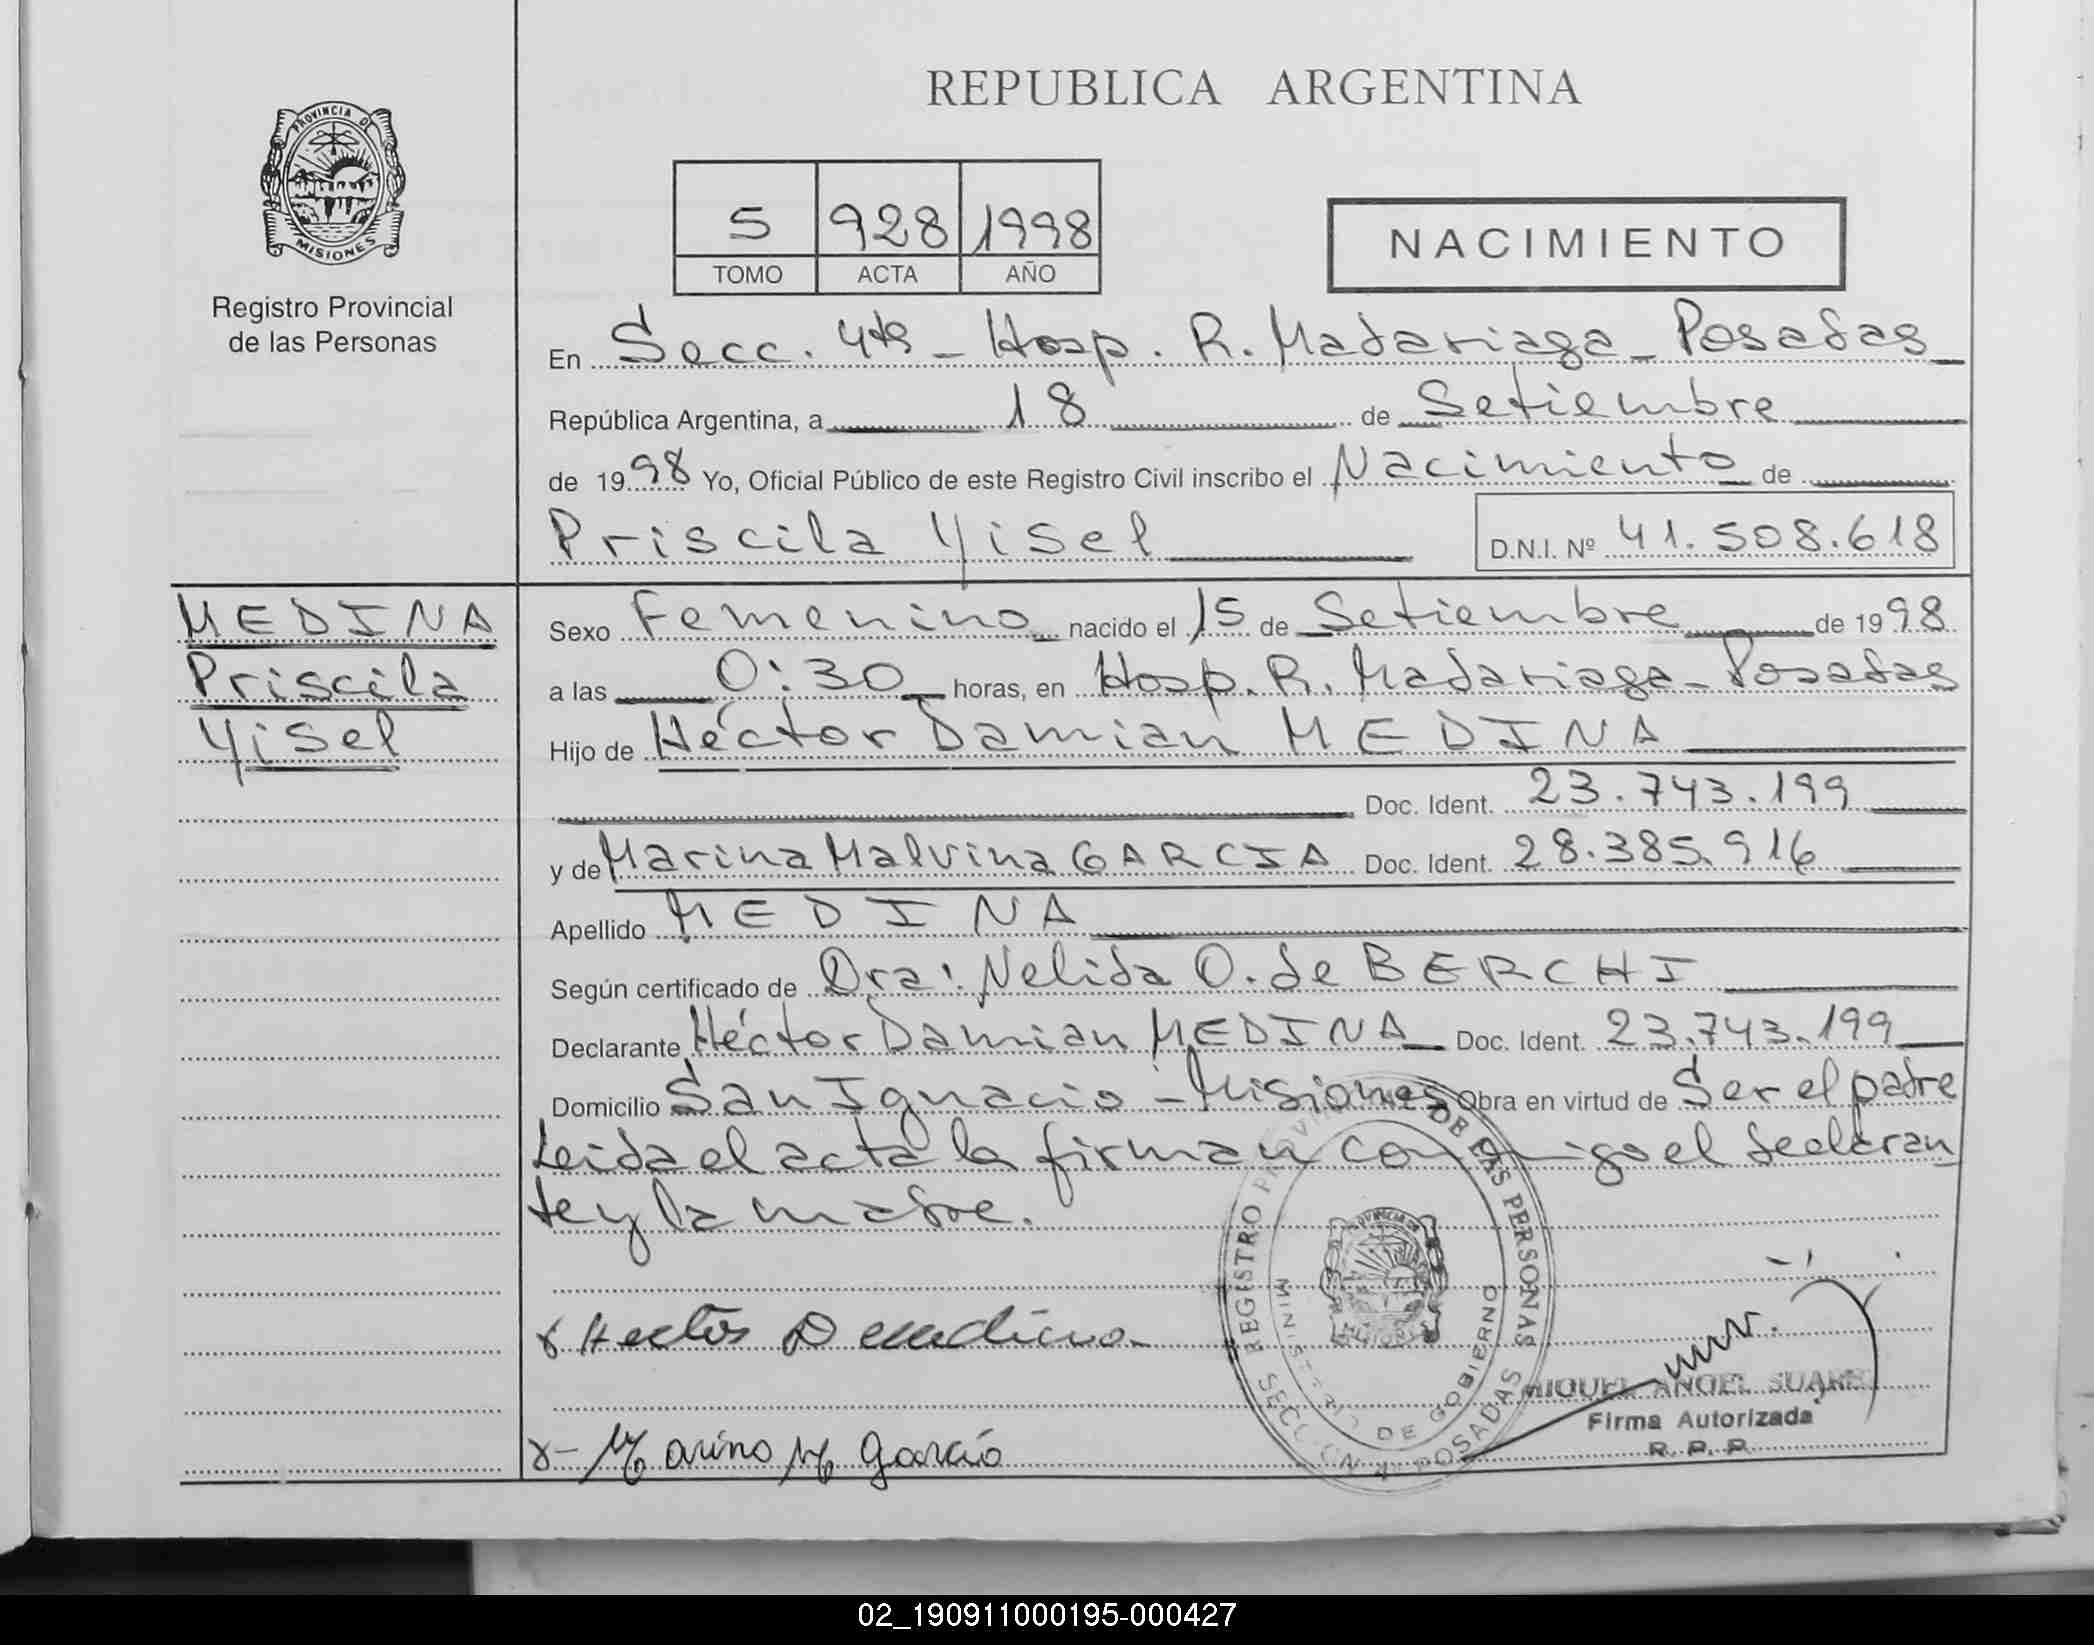 REPUBLICA ARGENTINA
PROVINCIA DE
MISIONES
Registro Provincial
de las Personas
5 928 1998
TOMO ACTA AÑO
NACIMIENTO
En Secc. 4ta - Hosp. R. Madariaga - Posadas
República Argentina, a 18 de Setiembre
de 1998 Yo, Oficial Público de este Registro Civil inscribo el Nacimiento de
Priscila Yisel D.N.I. Nº 41.508.618
MEDINA
Priscila
Yisel
Sexo Femenino nacido el 15 de Setiembre de 1998
a las 0:30 horas, en Hosp. R. Madariaga - Posadas
Hijo de Héctor Damian MEDINA
Doc. Ident. 23.743.199
y de Marina Malvina GARCIA Doc. Ident. 28.385.916
Apellido MEDINA
Según certificado de Dra: Nelida O. de BERCHI
Declarante Héctor Damian MEDINA Doc. Ident. 23.743.199
Domicilio San Ignacio - Misiones Obra en virtud de Ser el padre
Leida el acta la firman conmigo el declaran
te y la madre.
Hector D Medina
Marina M Garcia
REGISTRO PROVINCIAL DE LAS PERSONAS
MINISTERIO DE GOBIERNO
SECCION 4ª POSADAS
MIGUEL ANGEL SUAREZ
Firma Autorizada
R. P. P.
02_190911000195-000427